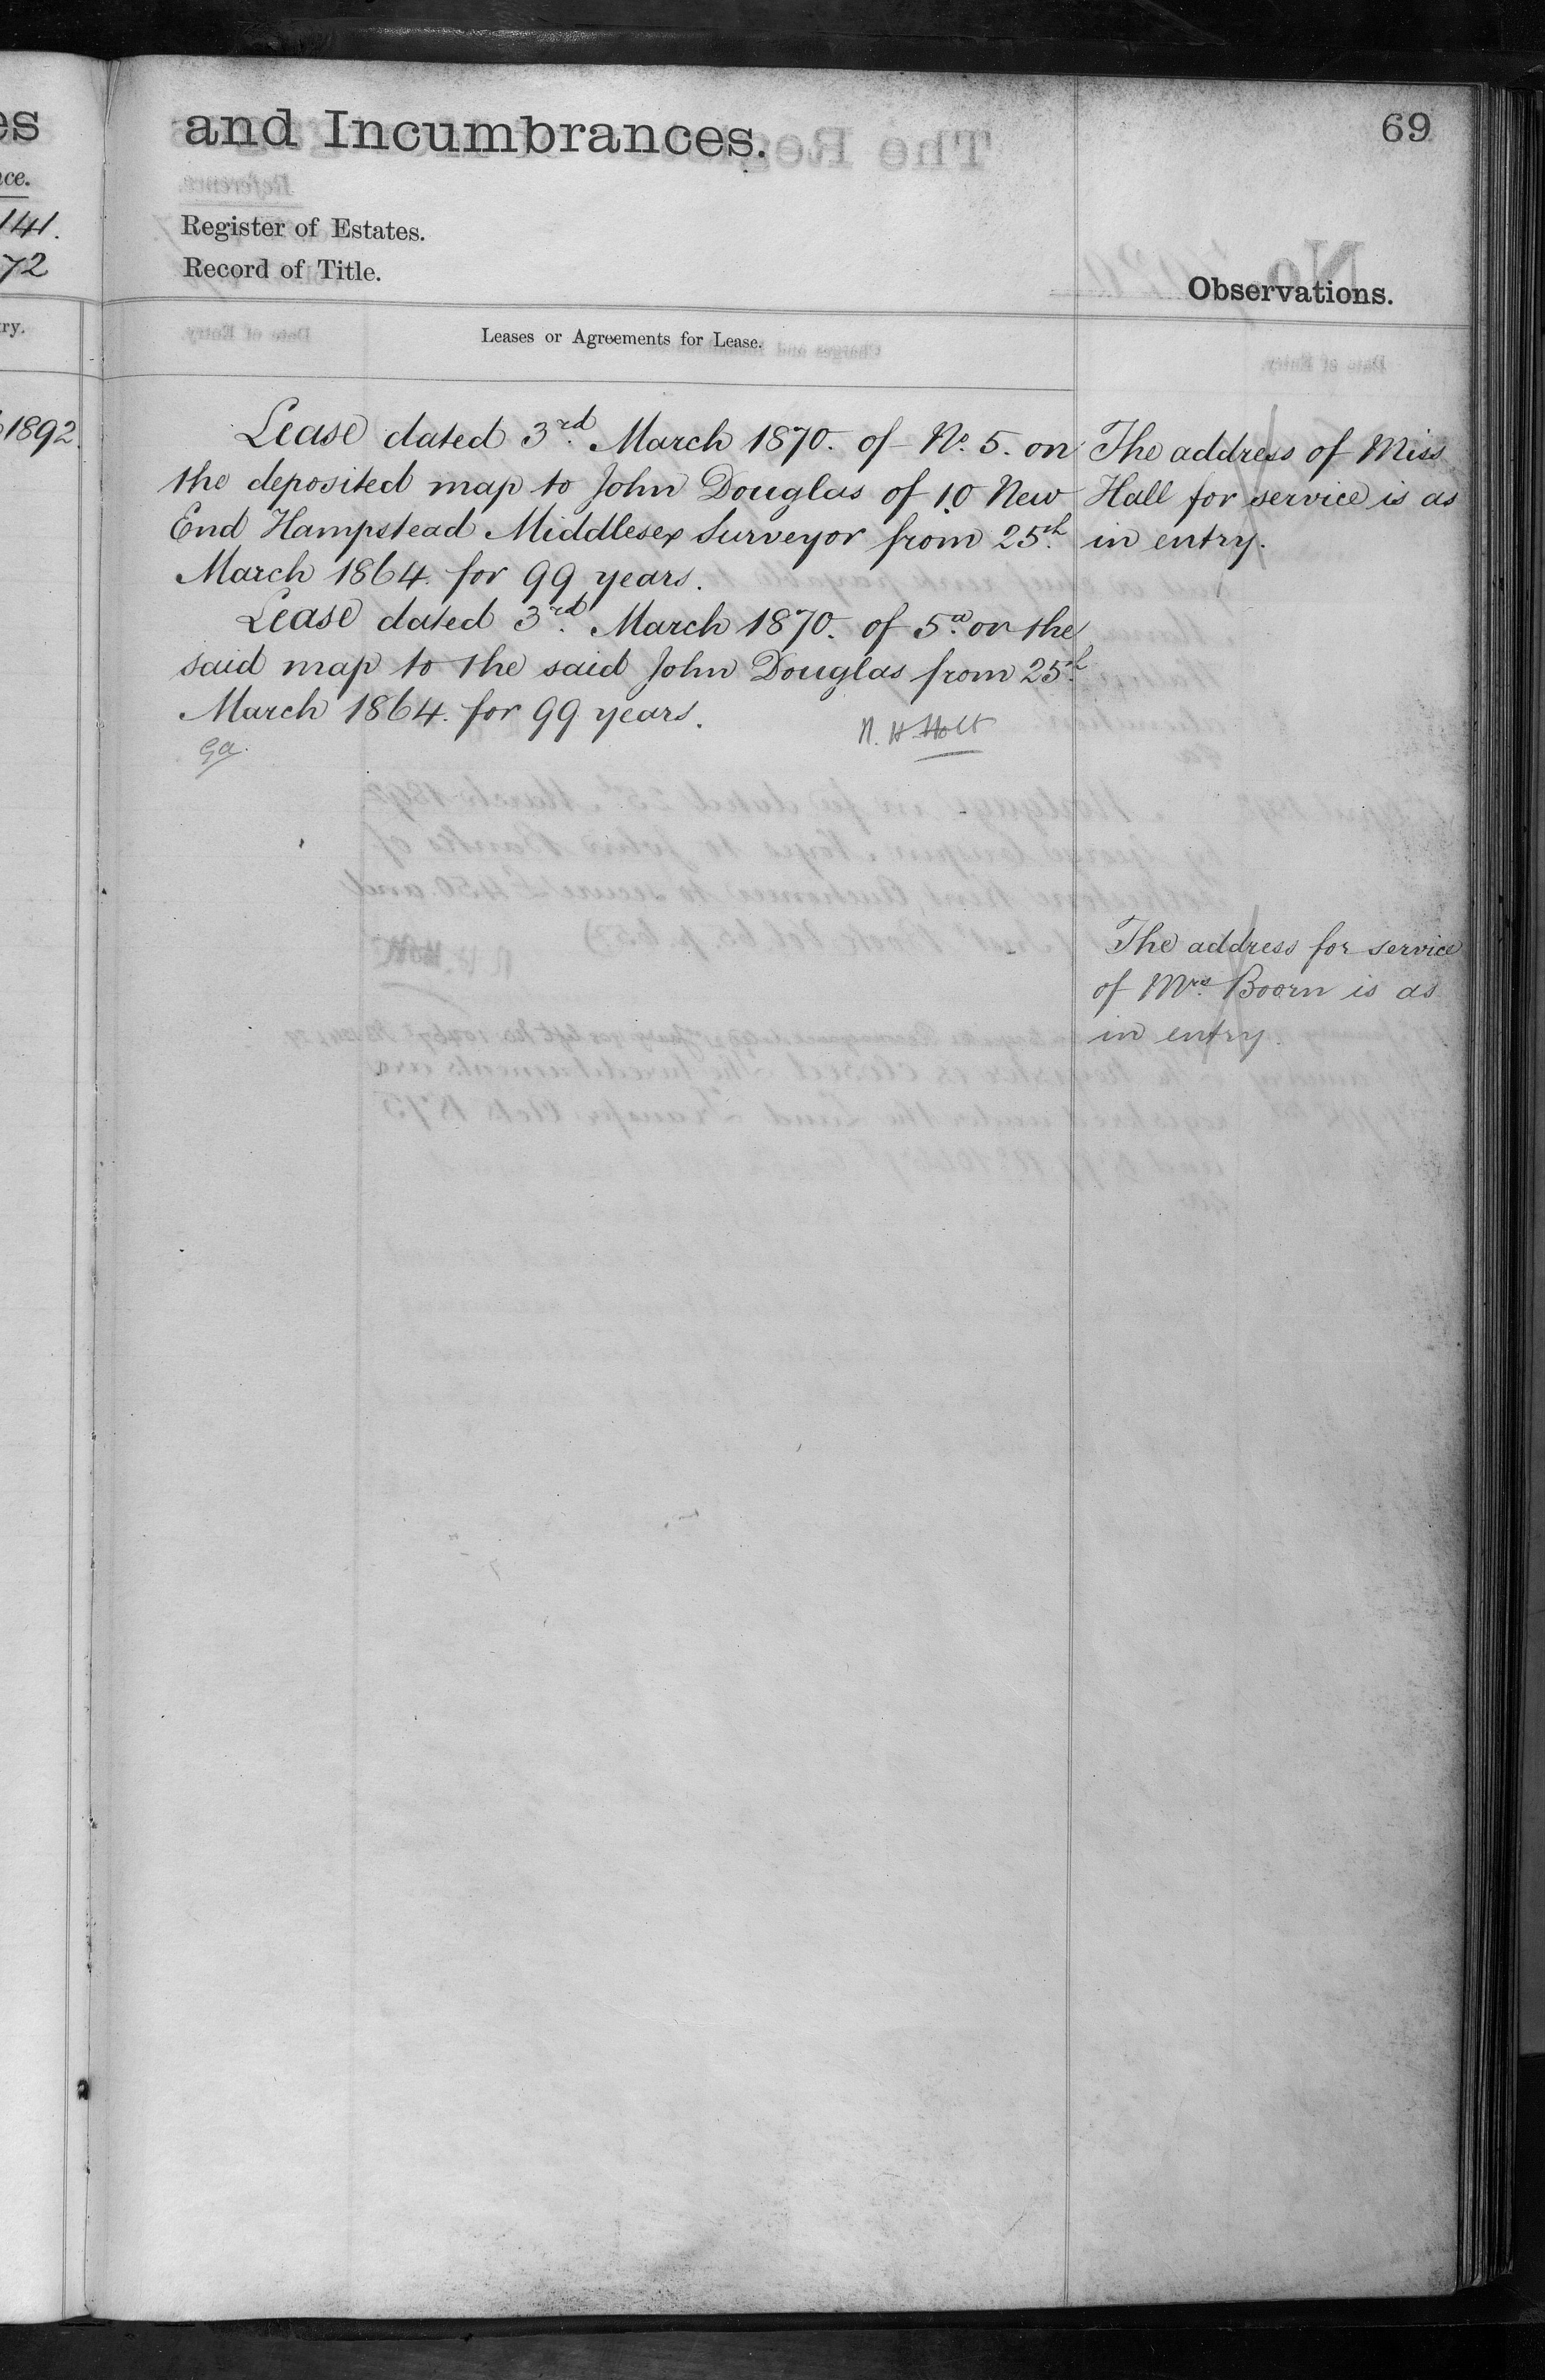 es
nce.
141.
72
try.
1892.
and Incumbrances.
69
Register of Estates.
Record of Title.
Observations.
Leases or Agreements for Lease.
Lease dated 3rd. March 1870. of No. 5. on
the deposited map to John Douglas of 10 New
End Hampstead Middlesex Surveyor from 25th.
March 1864. for 99 years.
Lease dated 3rd. March 1870. of 5a. on the
said map to the said John Douglas from 25th.
March 1864. for 99 years.
N. H. Holt
The address of Miss
Hall for service is as
in entry.
The address for service
of Mrs. Boorn is as
in entry.